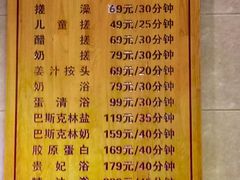 搓 澡 69元/30分钟
儿童搓 49元/25分钟
醋 搓 79元/30分钟
奶 搓 79元/30分钟
姜汁按头 69元/20分钟
奶 浴 79元/30分钟
蛋清浴 99元/30分钟
巴斯克林盐 119元/35分钟
巴斯克林奶 159元/40分钟
胶原蛋白 169元/40分钟
贵妃浴 179元/40分钟